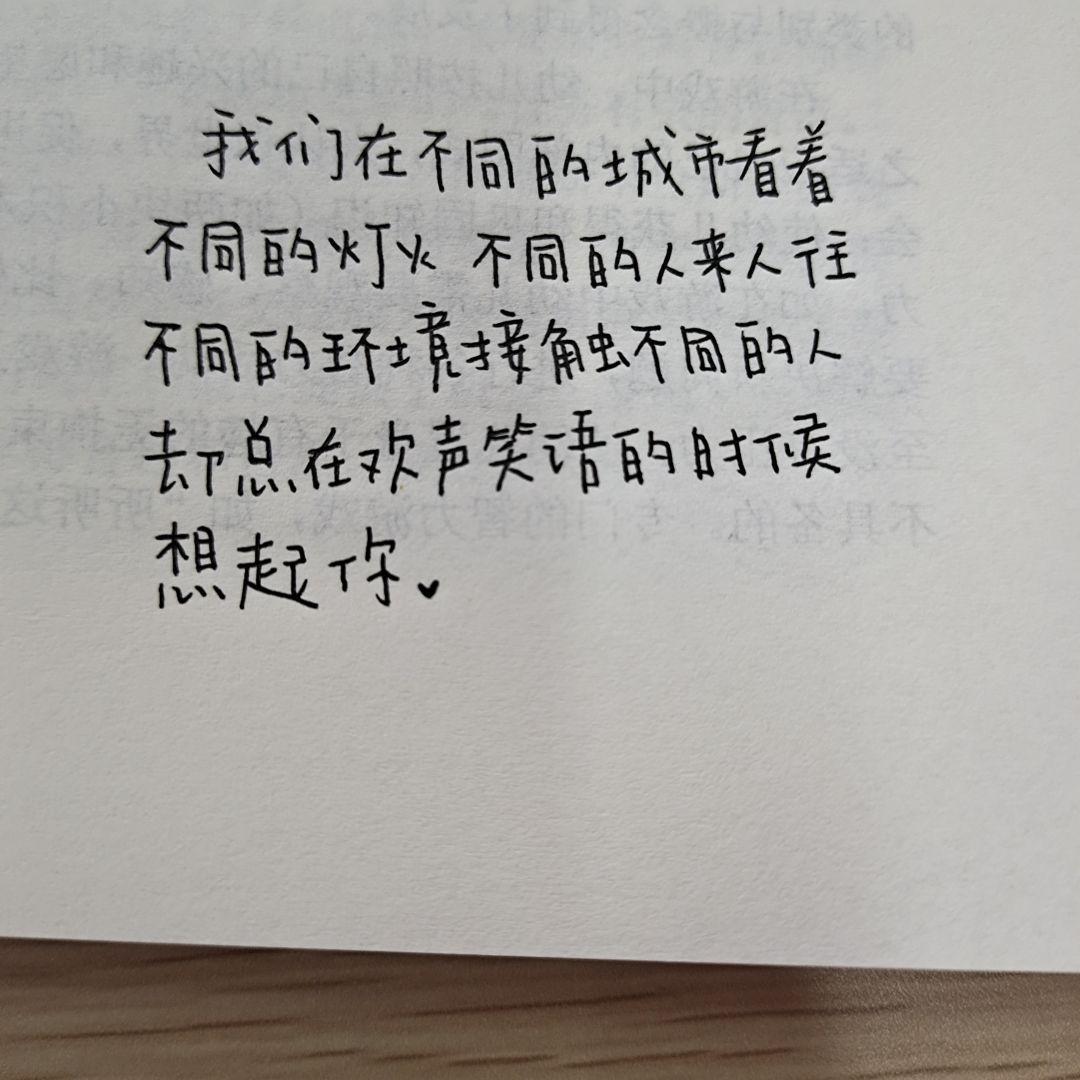 我们在不同的城市看着
不同的灯火 不同的人来人往
不同的环境接触不同的人
却总在欢声笑语的时候
想起你